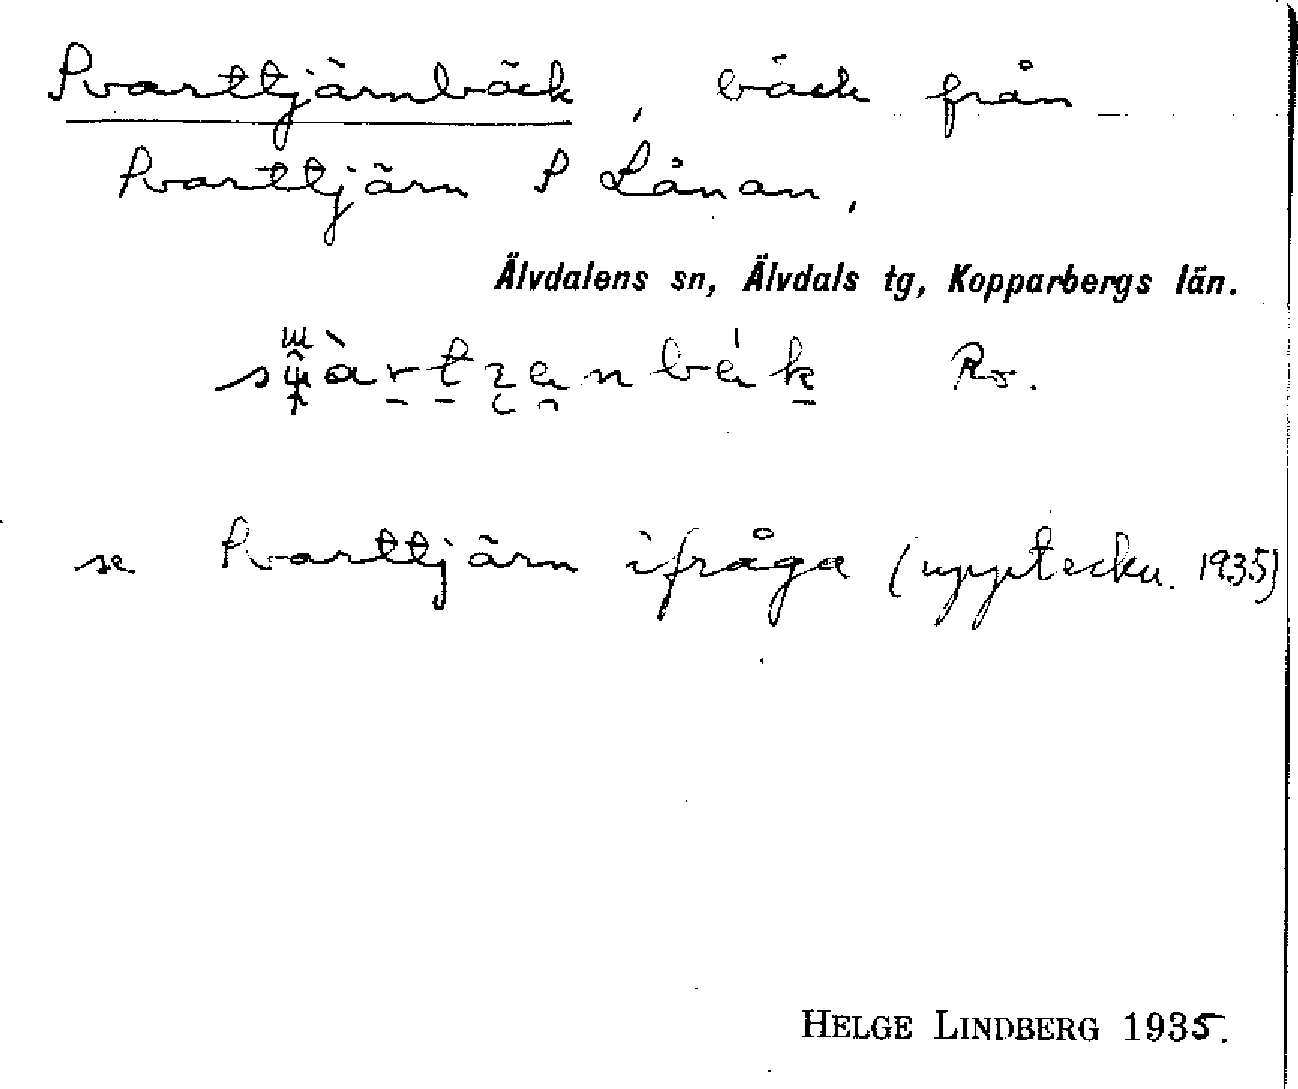 Svarttjärnbäck, bäck från
Svarttjärn S Lånan.
Älvdalens sn, Älvdals tg, Kopparbergs län.
Ro.
se Svarttjärn ifråga (uppteckn. 1935)
HELGE LINDBERG 1935.